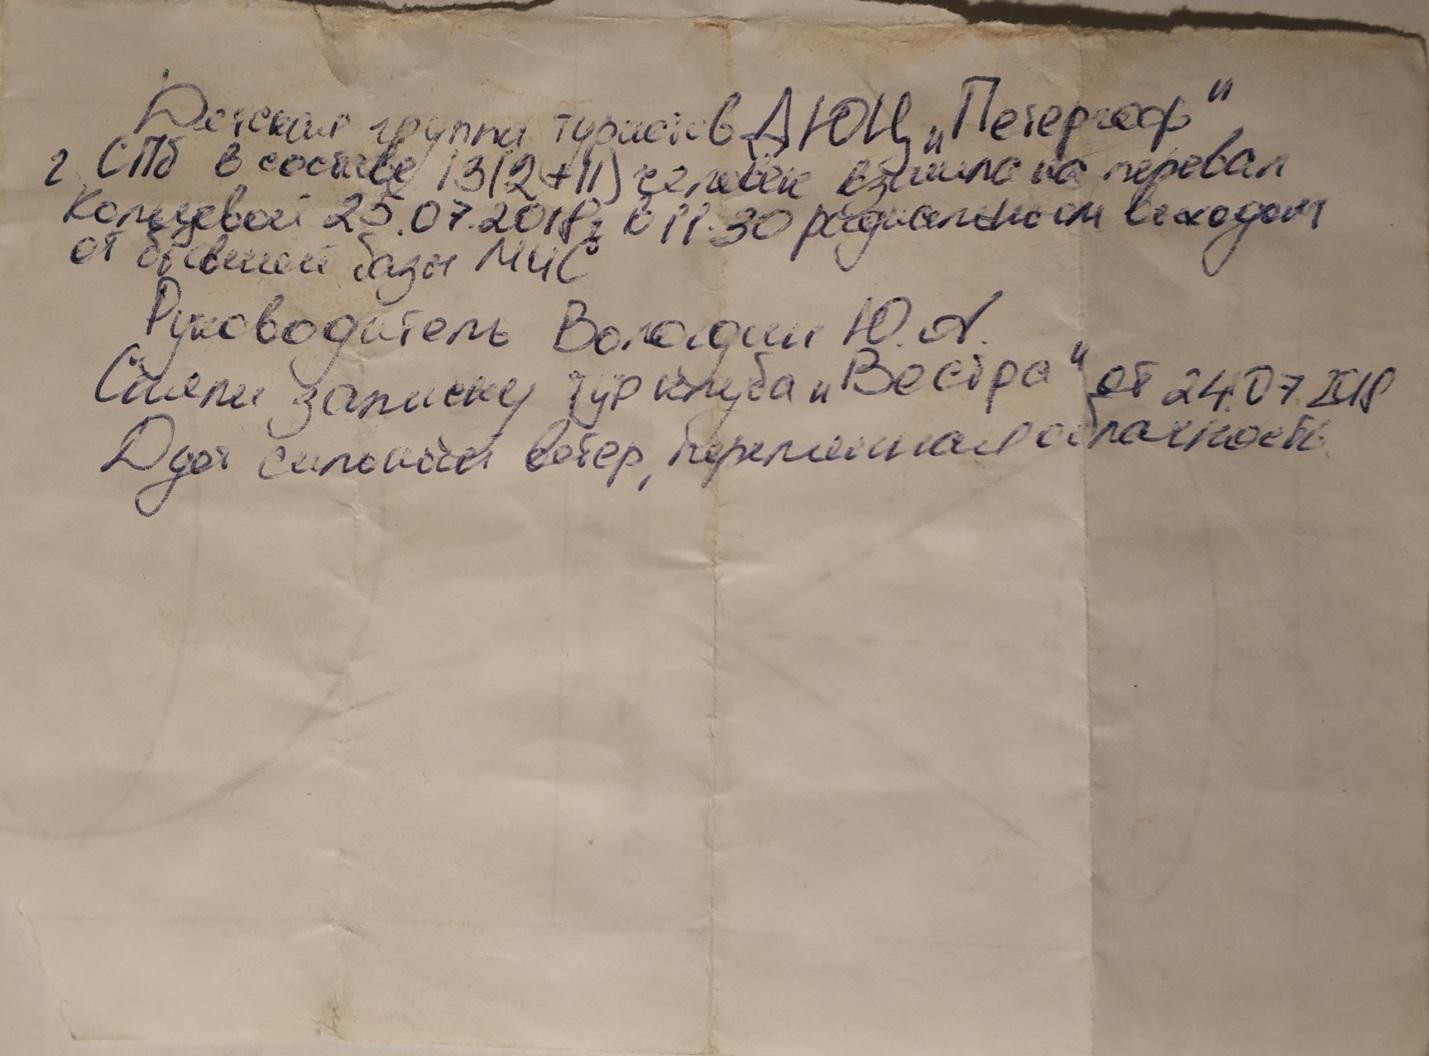 Детская группа туристов ДЮЦ „Петергоф“
г. СПб в составе 13(2+11) человек взошла на перевал
Кольцевой 25.07.2018г. в 11.30 радиальным выходом
от бывшей базы МЧС
Руководитель Володин Ю.А.
Сняли записку турклуба „Вестра“ от 24.07.2018
Дует сильный ветер, переменная облачность.